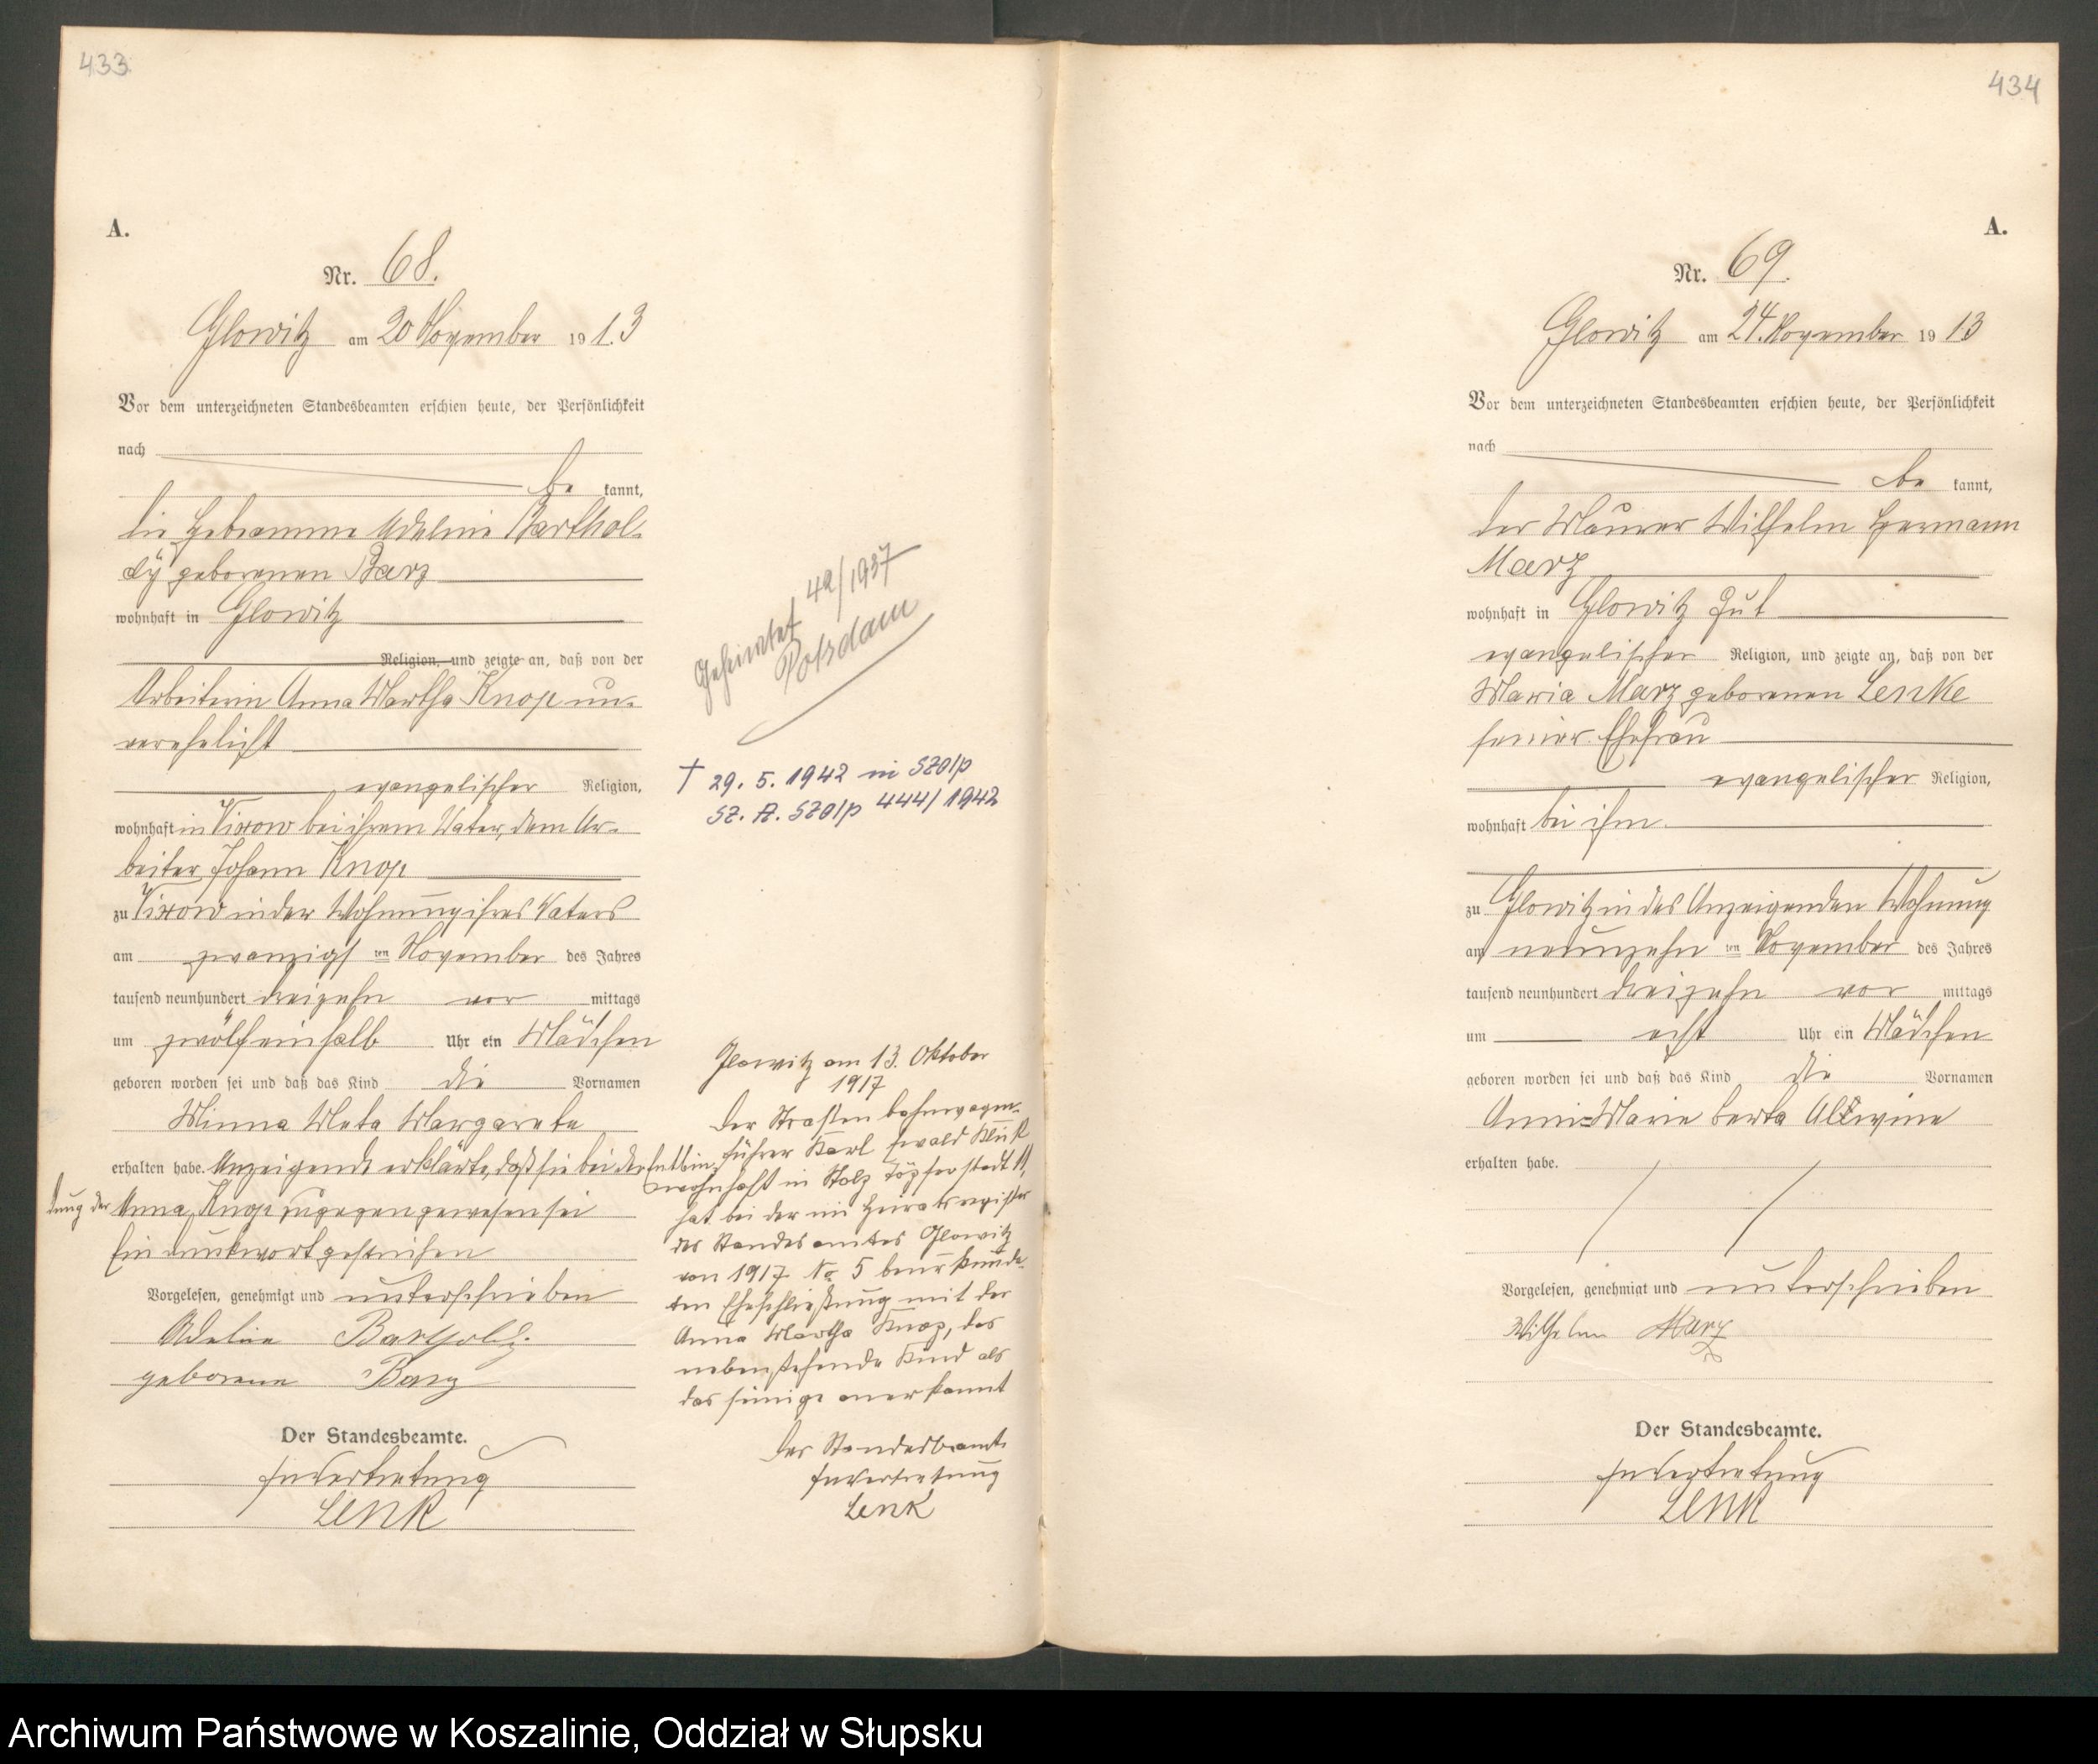 433
A.
Nr. 68.
Glowitz am 20 November 1913
Vor dem unterzeichneten Standesbeamten erschien heute, der Persönlichkeit
nach
be kannt,
die Hebamme Adeline Barthol-
dy geborenen Barz
wohnhaft in Glowitz
Religion, und zeigte an, daß von der
Arbeiterin Anna Martha Knop un-
verehelicht
evangelischer Religion,
wohnhaft in Vixow bei ihrem Vater, dem Ar-
beiter Johann Knop
zu Vixow in der Wohnung ihres Vaters
am zwanzigs ten November des Jahres
tausend neunhundert dreizehn vor mittags
um zwölfeinhalb Uhr ein Mädchen
geboren worden sei und daß das Kind die Vornamen
Minna Meta Margarete
erhalten habe. Anzeigende erklärte, daß sie bei der Entbin
dung der Anna Knop zugegen gewesen sei
Ein Druckwort gestrichen
Vorgelesen, genehmigt und unterschrieben
Adeline Bartholdy
geborene Barz
Der Standesbeamte.
In Vertretung
Lenk
Geheiratet 49/1937
Potsdam
† 29. 5. 1942 in Stolp
St. A. Stolp 444/1942
Glowitz am 13. Oktober
1917
Der Straßenbahnwagen-
führer Karl Ewald
wohnhaft in Stolp Töpferstadt 11,
hat bei der im Heiratsregister
des Standesamtes Glowitz
von 1917 No 5 beurkunde-
ten Eheschließung mit der
Anna Martha Knop, das
nebenstehende Kind als
das seinige anerkannt
Der Standesbeamte
In Vertretung
Lenk
434
A.
Nr. 69.
Glowitz am 24. November 1913
Vor dem unterzeichneten Standesbeamten erschien heute, der Persönlichkeit
nach
be kannt,
der Maurer Wilhelm Hermann
Marz
wohnhaft in Glowitz Gut
evangelischer Religion, und zeigte an, daß von der
Maria Marz geborenen Lenke
seiner Ehefrau
evangelischer Religion,
wohnhaft bei ihm
zu Glowitz in des Anzeigenden Wohnung
am neunzehn ten November des Jahres
tausend neunhundert dreizehn vor mittags
um acht Uhr ein Mädchen
geboren worden sei und daß das Kind die Vornamen
Anni=Marie Berta Alwine
erhalten habe.
Vorgelesen, genehmigt und unterschrieben
Wilhelm Marz
Der Standesbeamte.
In Vertretung
Lenk
Archiwum Państwowe w Koszalinie, Oddział w Słupsku